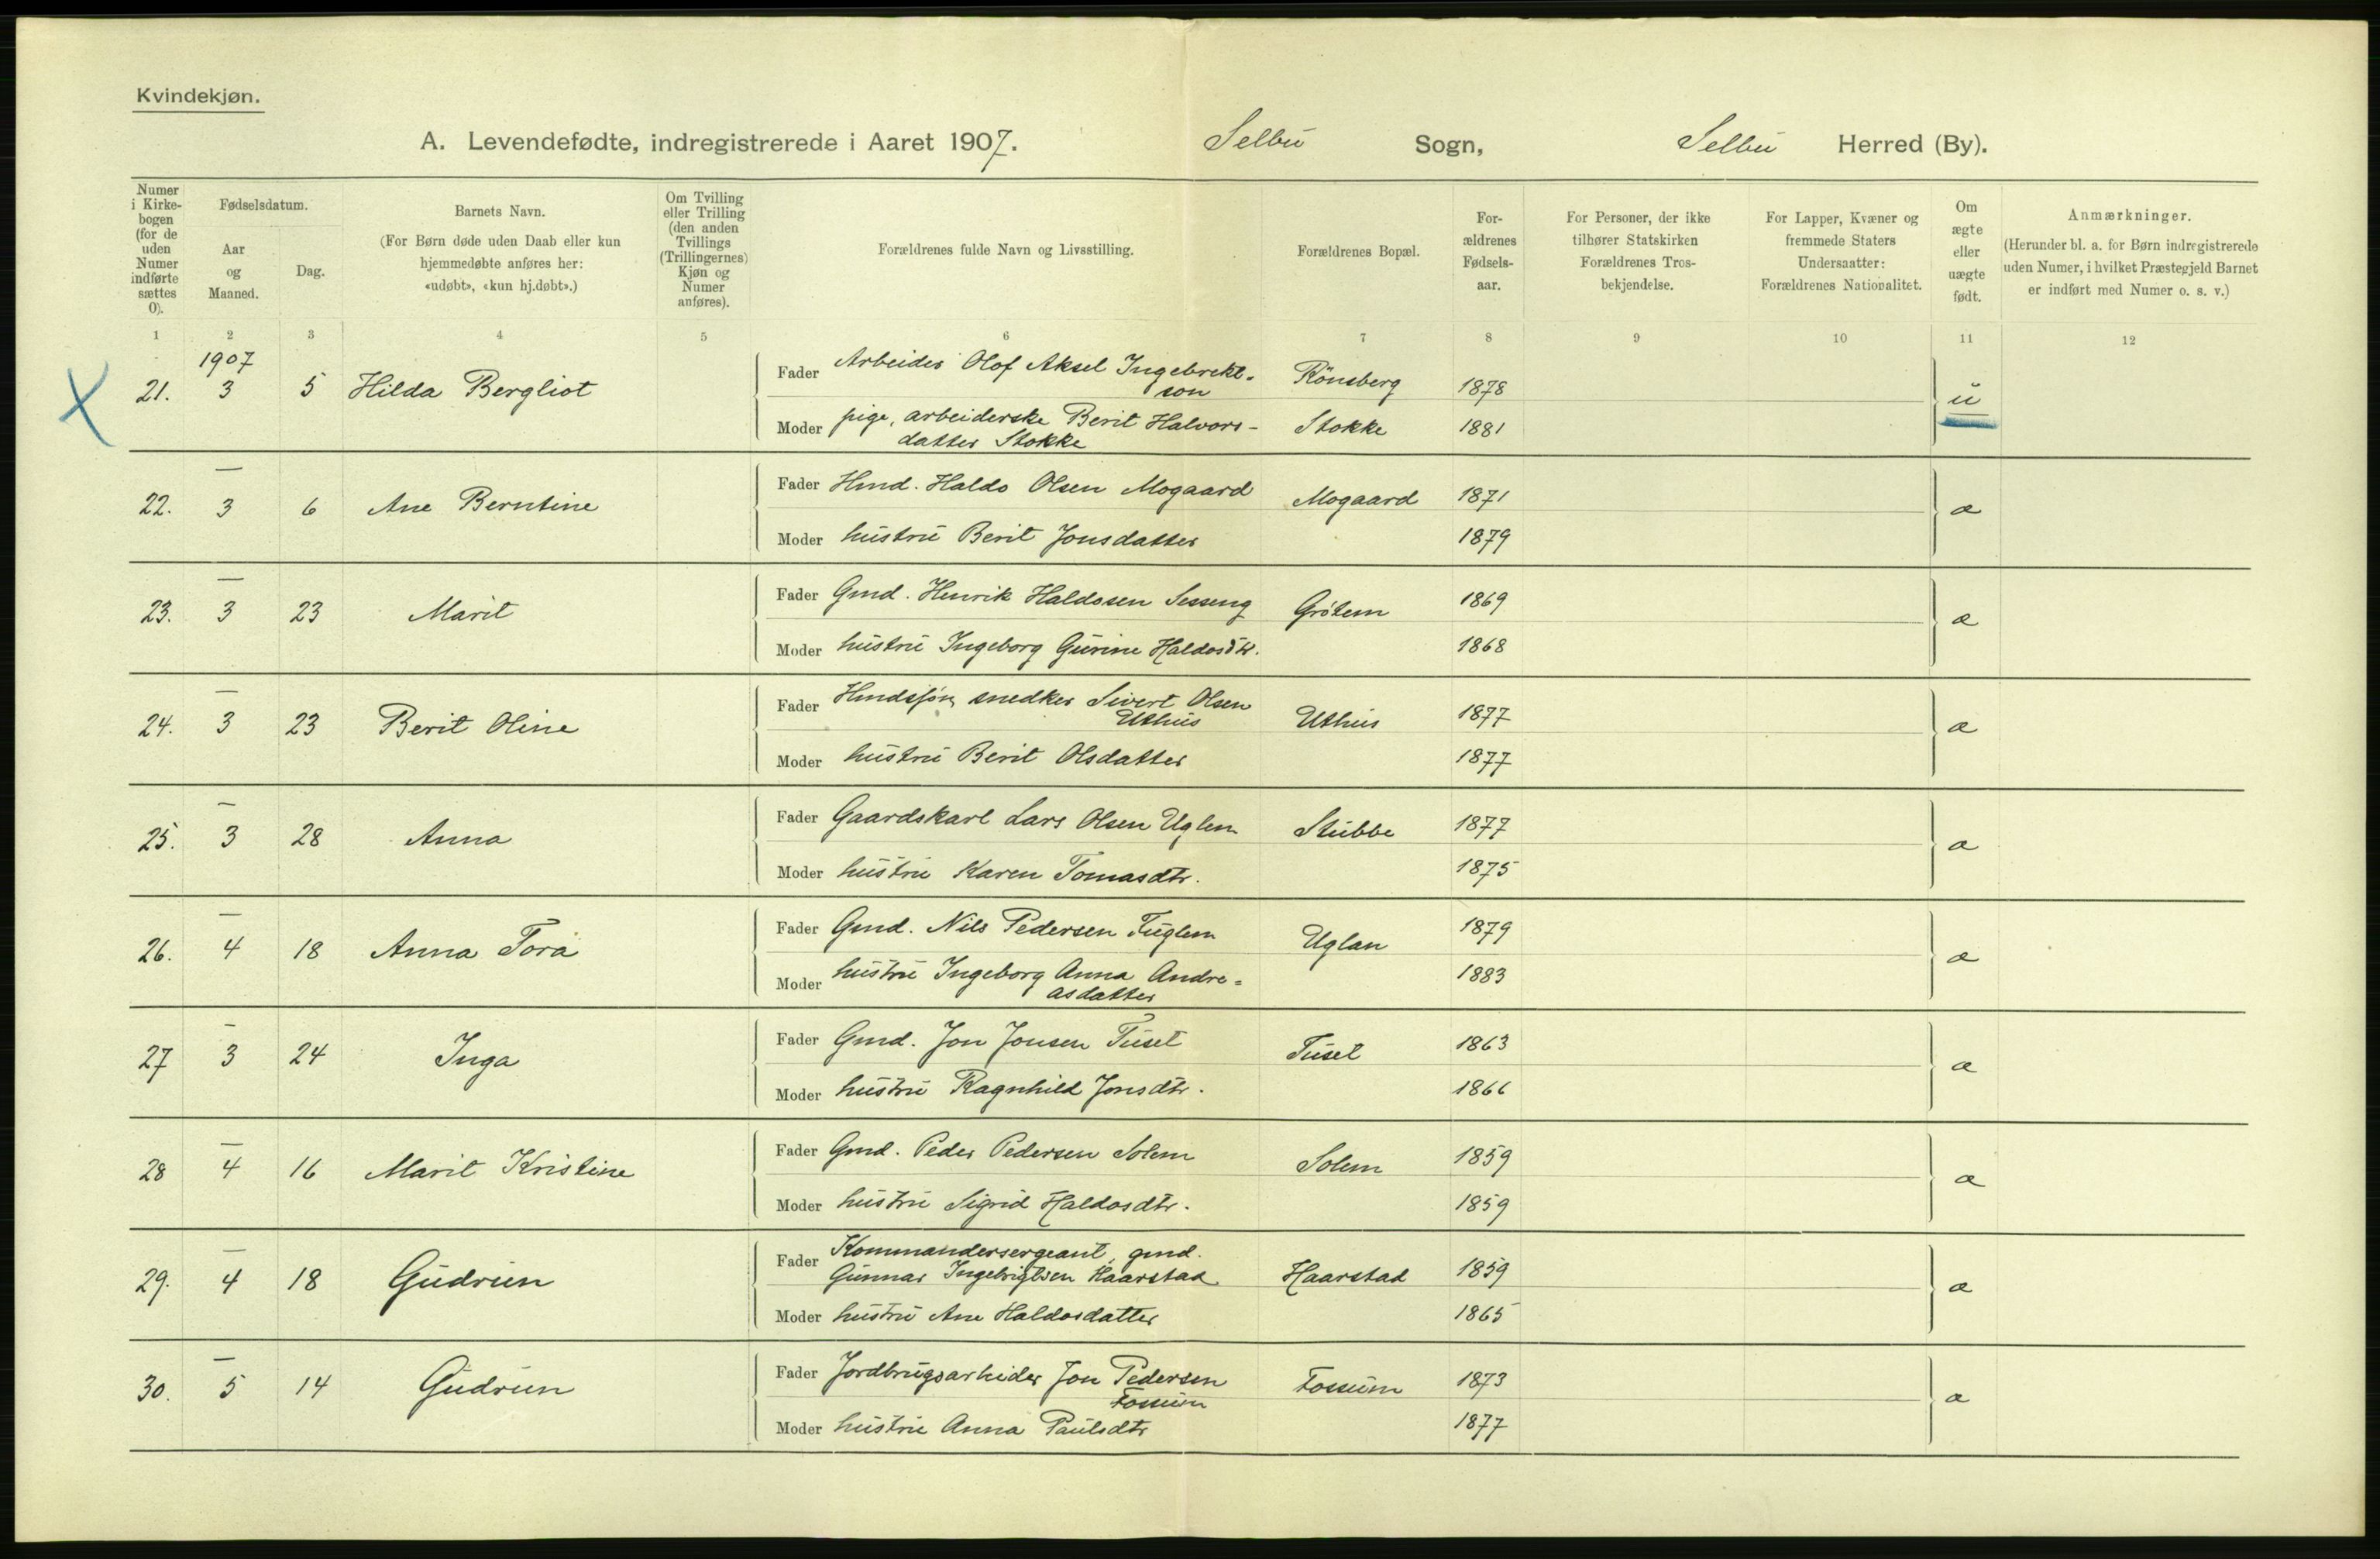 Kvindekjøn.
A. Levendefødte, indregistrerede i Aaret 1907. Selbu Sogn, Selbu Herred (By).
Numer i Kirkebogen (for de uden Numer indførte sættes 0).
Fødselsdatum.
Aar og Maaned.
Dag.
Barnets Navn.
(For Børn døde uden Daab eller kun hjemmedøbte anføres her: «udøbt», «kun hj.døbt».)
Om Tvilling eller Trilling (den anden Tvillings (Trillingernes) Kjøn og Numer anføres).
Forældrenes fulde Navn og Livsstilling.
Forældrenes Bopæl.
Forældrenes Fødselsaar.
For Personer, der ikke tilhører Statskirken Forældrenes Trosbekjendelse.
For Lapper, Kvæner og fremmede Staters Undersaatter: Forældrenes Nationalitet.
Om ægte eller uægte født.
Anmærkninger.
(Herunder bl. a. for Børn indregistrerede uden Numer, i hvilket Præstegjeld Barnet er indført med Numer o. s. v.)
1 2 3 4 5 6 7 8 9 10 11 12
1907
X 21. 3 5 Hilda Bergliot Fader Arbeider Olof Aksel Ingebrekt=
son Rönsberg 1878 u
Moder pige, arbeiderske Berit Halvors-
datter Stokke Stokke 1881
— 22. 3 6 Ane Berntine Fader Hmd. Haldo Olsen Mogaard Mogaard 1871 æ
Moder hustru Berit Jonsdatter 1879
— 23. 3 23 Marit Fader Gmd. Henrik Haldosen Sesseng Grötem 1869 æ
Moder hustru Ingeborg Gurine Haldosdtr. 1868
— 24. 3 23 Berit Oline Fader Hmdssön, snedker Sivert Olsen
Uthus Uthus 1877 æ
Moder hustru Berit Olsdatter 1877
— 25. 3 28 Anna Fader Gaardskarl Lars Olsen Uglem Stubbe 1877 æ
Moder hustru Karen Tomasdtr. 1875
— 26. 4 18 Anna Tora Fader Gmd. Nils Pedersen Fuglem Uglan 1879 æ
Moder hustru Ingeborg Anna Andre=
asdatter 1883
— 27 3 24 Inga Fader Gmd. Jon Jonsen Tuset Tuset 1863 æ
Moder hustru Ragnhild Jonsdtr. 1866
— 28 4 16 Marit Kristine Fader Gmd. Peder Pedersen Solem Solem 1859 æ
Moder hustru Sigrid Haldosdtr. 1859
— 29. 4 18 Gudrun Fader Kommandersergeant, gmd.
Gunnar Ingebrigtsen Haarstad Haarstad 1859 æ
Moder hustru Ane Haldosdatter 1865
— 30. 5 14 Gudrun Fader Jordbrugsarbeider Jon Pedersen
Fossum Fossum 1873 æ
Moder hustru Anna Paulsdtr 1877